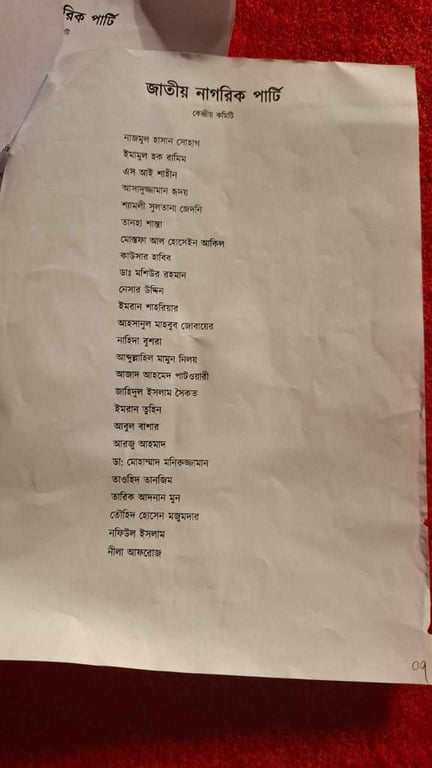 রিক পার্টি
জাতীয় নাগরিক পার্টি
কেন্দ্রীয় কমিটি
নাজমুল হাসান সোহাগ
ইমামুল হক রামিম
এস আই শাহীন
আসাদুজ্জামান হৃদয়
শ্যামলী সুলতানা জেদনি
তানহা শান্তা
মোস্তফা আল হোসেইন আকিল
কাউসার হাবিব
ডাঃ মশিউর রহমান
নেসার উদ্দিন
ইমরান শাহরিয়ার
আহসানুল মাহবুব জোবায়ের
নাহিদা বুশরা
আব্দুল্লাহিল মামুন নিলয়
আজাদ আহমেদ পাটওয়ারী
জাহিদুল ইসলাম সৈকত
ইমরান তুহিন
আবুল বাশার
আরজু আহমাদ
ডা: মোহাম্মাদ মনিরুজ্জামান
তাওহিদ তানজিম
তারিক আদনান মুন
তৌহিদ হোসেন মজুমদার
নফিউল ইসলাম
নীলা আফরোজ
০৭